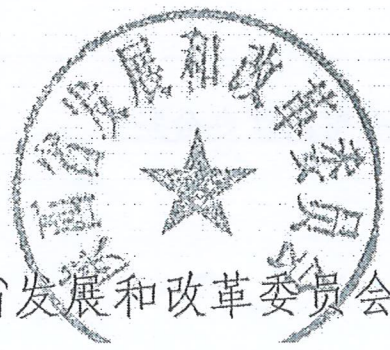 西省发展和改革委员会
省发展和改革委员会